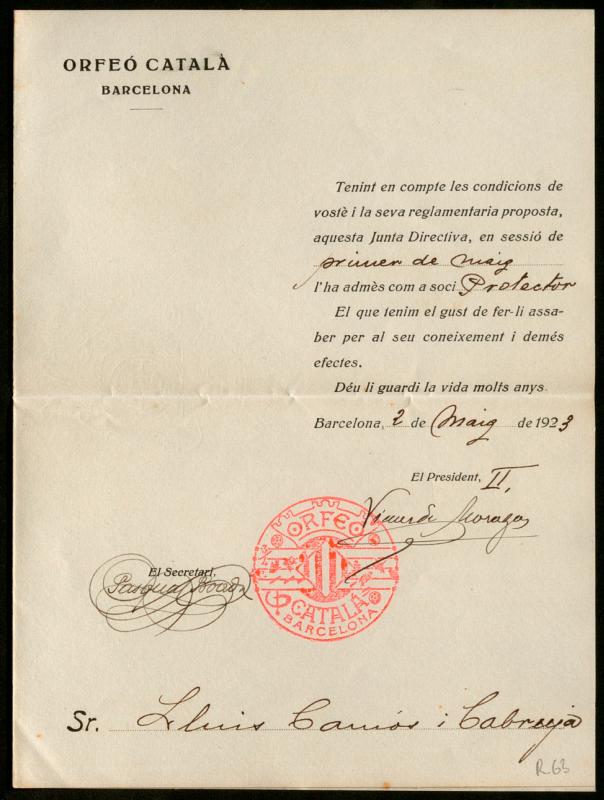 ORFEÓ CATALÀ
BARCELONA
Tenint en compte les condicions de
vostè i la seva reglamentaria proposta,
aquesta Junta Directiva, en sessió de
primer de maig
l'ha admès com a soci Protector
El que tenim el gust de fer-li assa-
ber per al seu coneixement i demés
efectes.
Déu li guardi la vida molts anys.
Barcelona, 2 de Maig de 1923
El President, II,
Vicens de Moragas
ORFEO
CATALÀ
BARCELONA
El Secretari,
Pasqual Boada
Sr. Lluis Camós i Cabruja
R 63